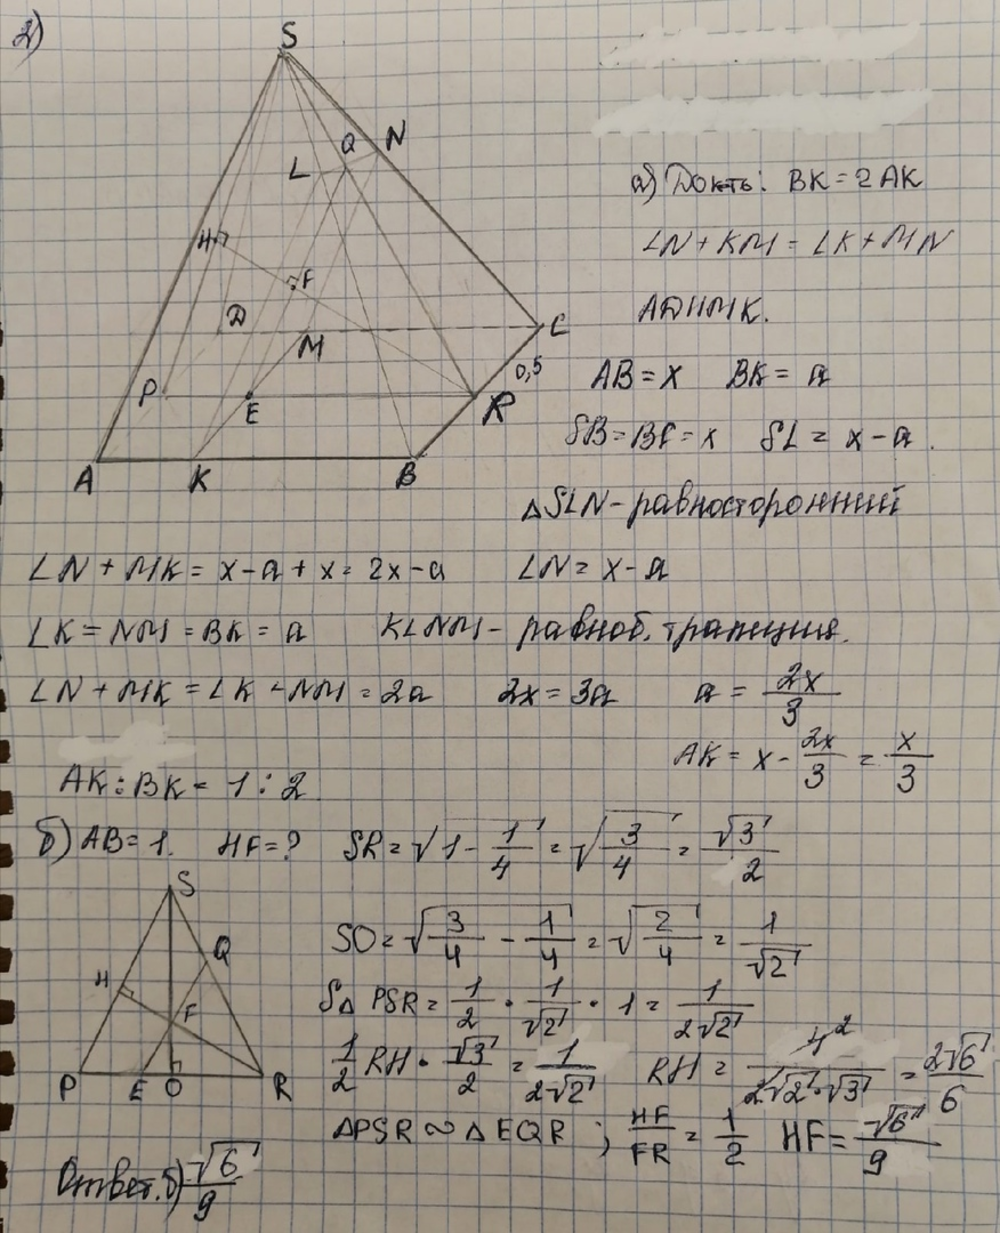 2)
S
Q N
L
H
F
D
M
C
0,5
P
E
R
A K B
а) Док-ть: BK = 2AK
LN + KM = LK + MN
AD || MK.
AB = x BK = a
SB = BC = x SL = x - a.
△SLN - равносторонний
LN + MK = x - a + x = 2x - a LN = x - a
LK = NM = BK = a KLNM - равноб. трапеция.
LN + MK = LK + NM = 2a 2x = 3a a = 2x/3
AK = x - 2x/3 = x/3
AK : BK = 1 : 2
б) AB = 1. HF = ? SR = √(1 - 1/4) = √(3/4) = √3/2
S
Q
H
F
P E O R
SO = √(3/4 - 1/4) = √(2/4) = 1/√2
S△ PSR = 1/2 · 1/√2 · 1 = 1/(2√2)
1/2 RH · √3/2 = 1/(2√2) RH = 4²/(2√2·√3) = 2√6/6
△PSR ∾ △EQR ; HF/FR = 1/2 HF = √6/9
Ответ. б) √6/9